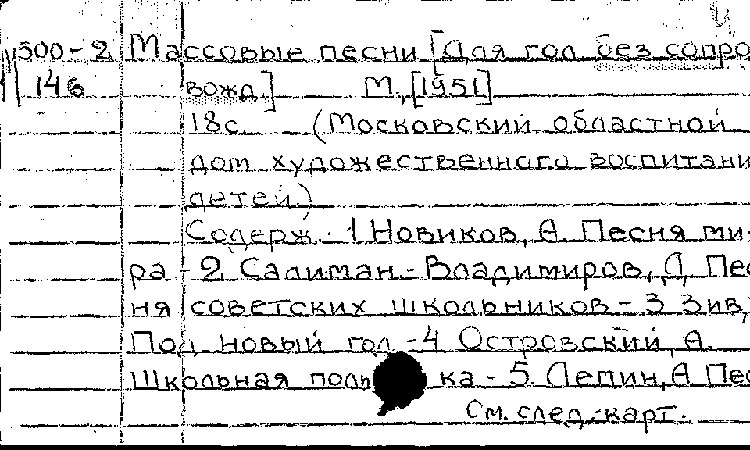 М500-2 Массовые песни [Для гол без сопро
146 вожд.] М., [1951]
18с (Московский областной
дом художественного воспитани
детей)
Содерж.- 1 Новиков, А. Песня ми-
ра - 2. Салиман-Владимиров, Д. Пес
ня советских школьников - 3 Зив,
Под новый год - 4 Островский, А.
Школьная поль ка - 5. Лепин, А Пес
См. след. карт.